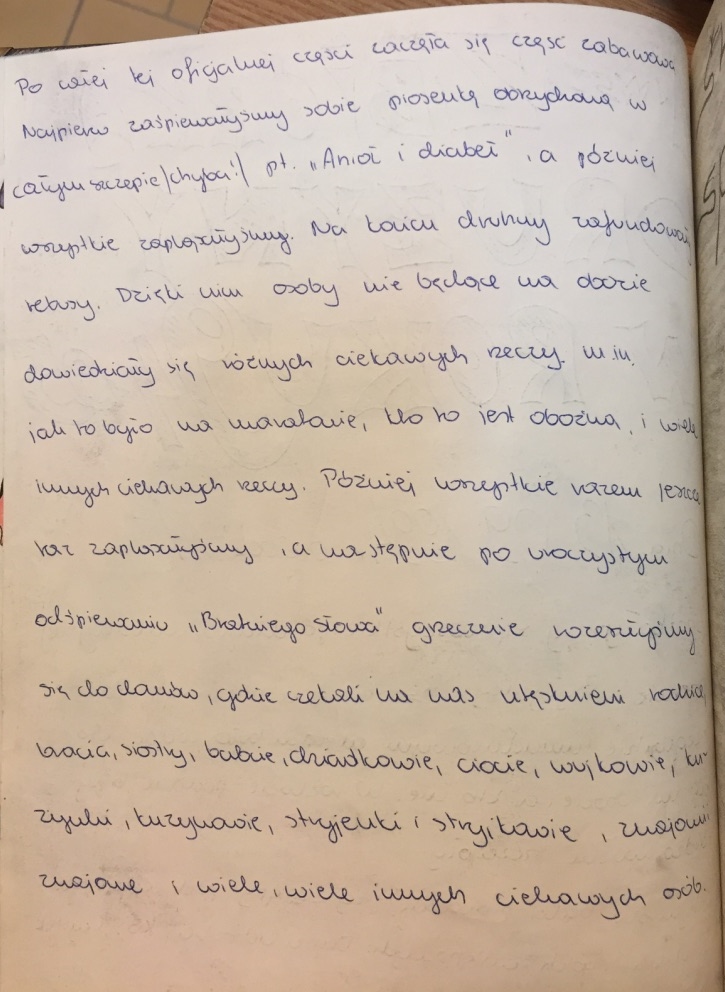 Po całej tej oficjalnej części zaczęła się część zabawowa
Najpierw zaśpiewałyśmy sobie piosenkę obrzydzoną w
całym szczepie/chyba!/ pt. „Anioł i diabeł”, a później
wszystkie zapląsałyśmy. Na końcu druhny zafundowały
rebusy. Dzięki nim osoby nie będące na obozie
dowiedziały się różnych ciekawych rzeczy. m.in.
jak to było na maratonie, kto to jest oboźna, i wiele
innych ciekawych rzeczy. Później wszystkie razem jeszcze
raz zapląsałyśmy, a następnie po uroczystym
odśpiewaniu „Bratniego Słowa” grzecznie rozeszłyśmy
się do domów, gdzie czekali na nas utęsknieni rodzice,
bracia, siostry, babcie, dziadkowie, ciocie, wujkowie, ku-
zynki, kuzynowie, stryjenki i stryjkowie, znajomi
znajome i wiele, wiele innych ciekawych osób.